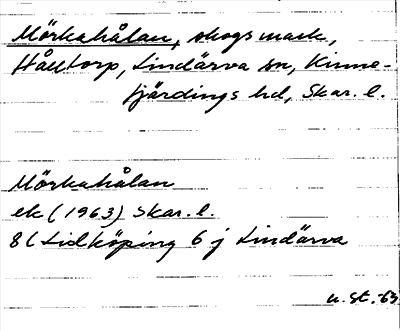 Mörkahålan, skogsmark,
Hålltorp, Lindärva sn, Kinne-
fjärdings hd, Skar. l.
Mörkahålan
ek (1963) Skar. l.
8( Lidköping 6 j Lindärva
u. st. -63